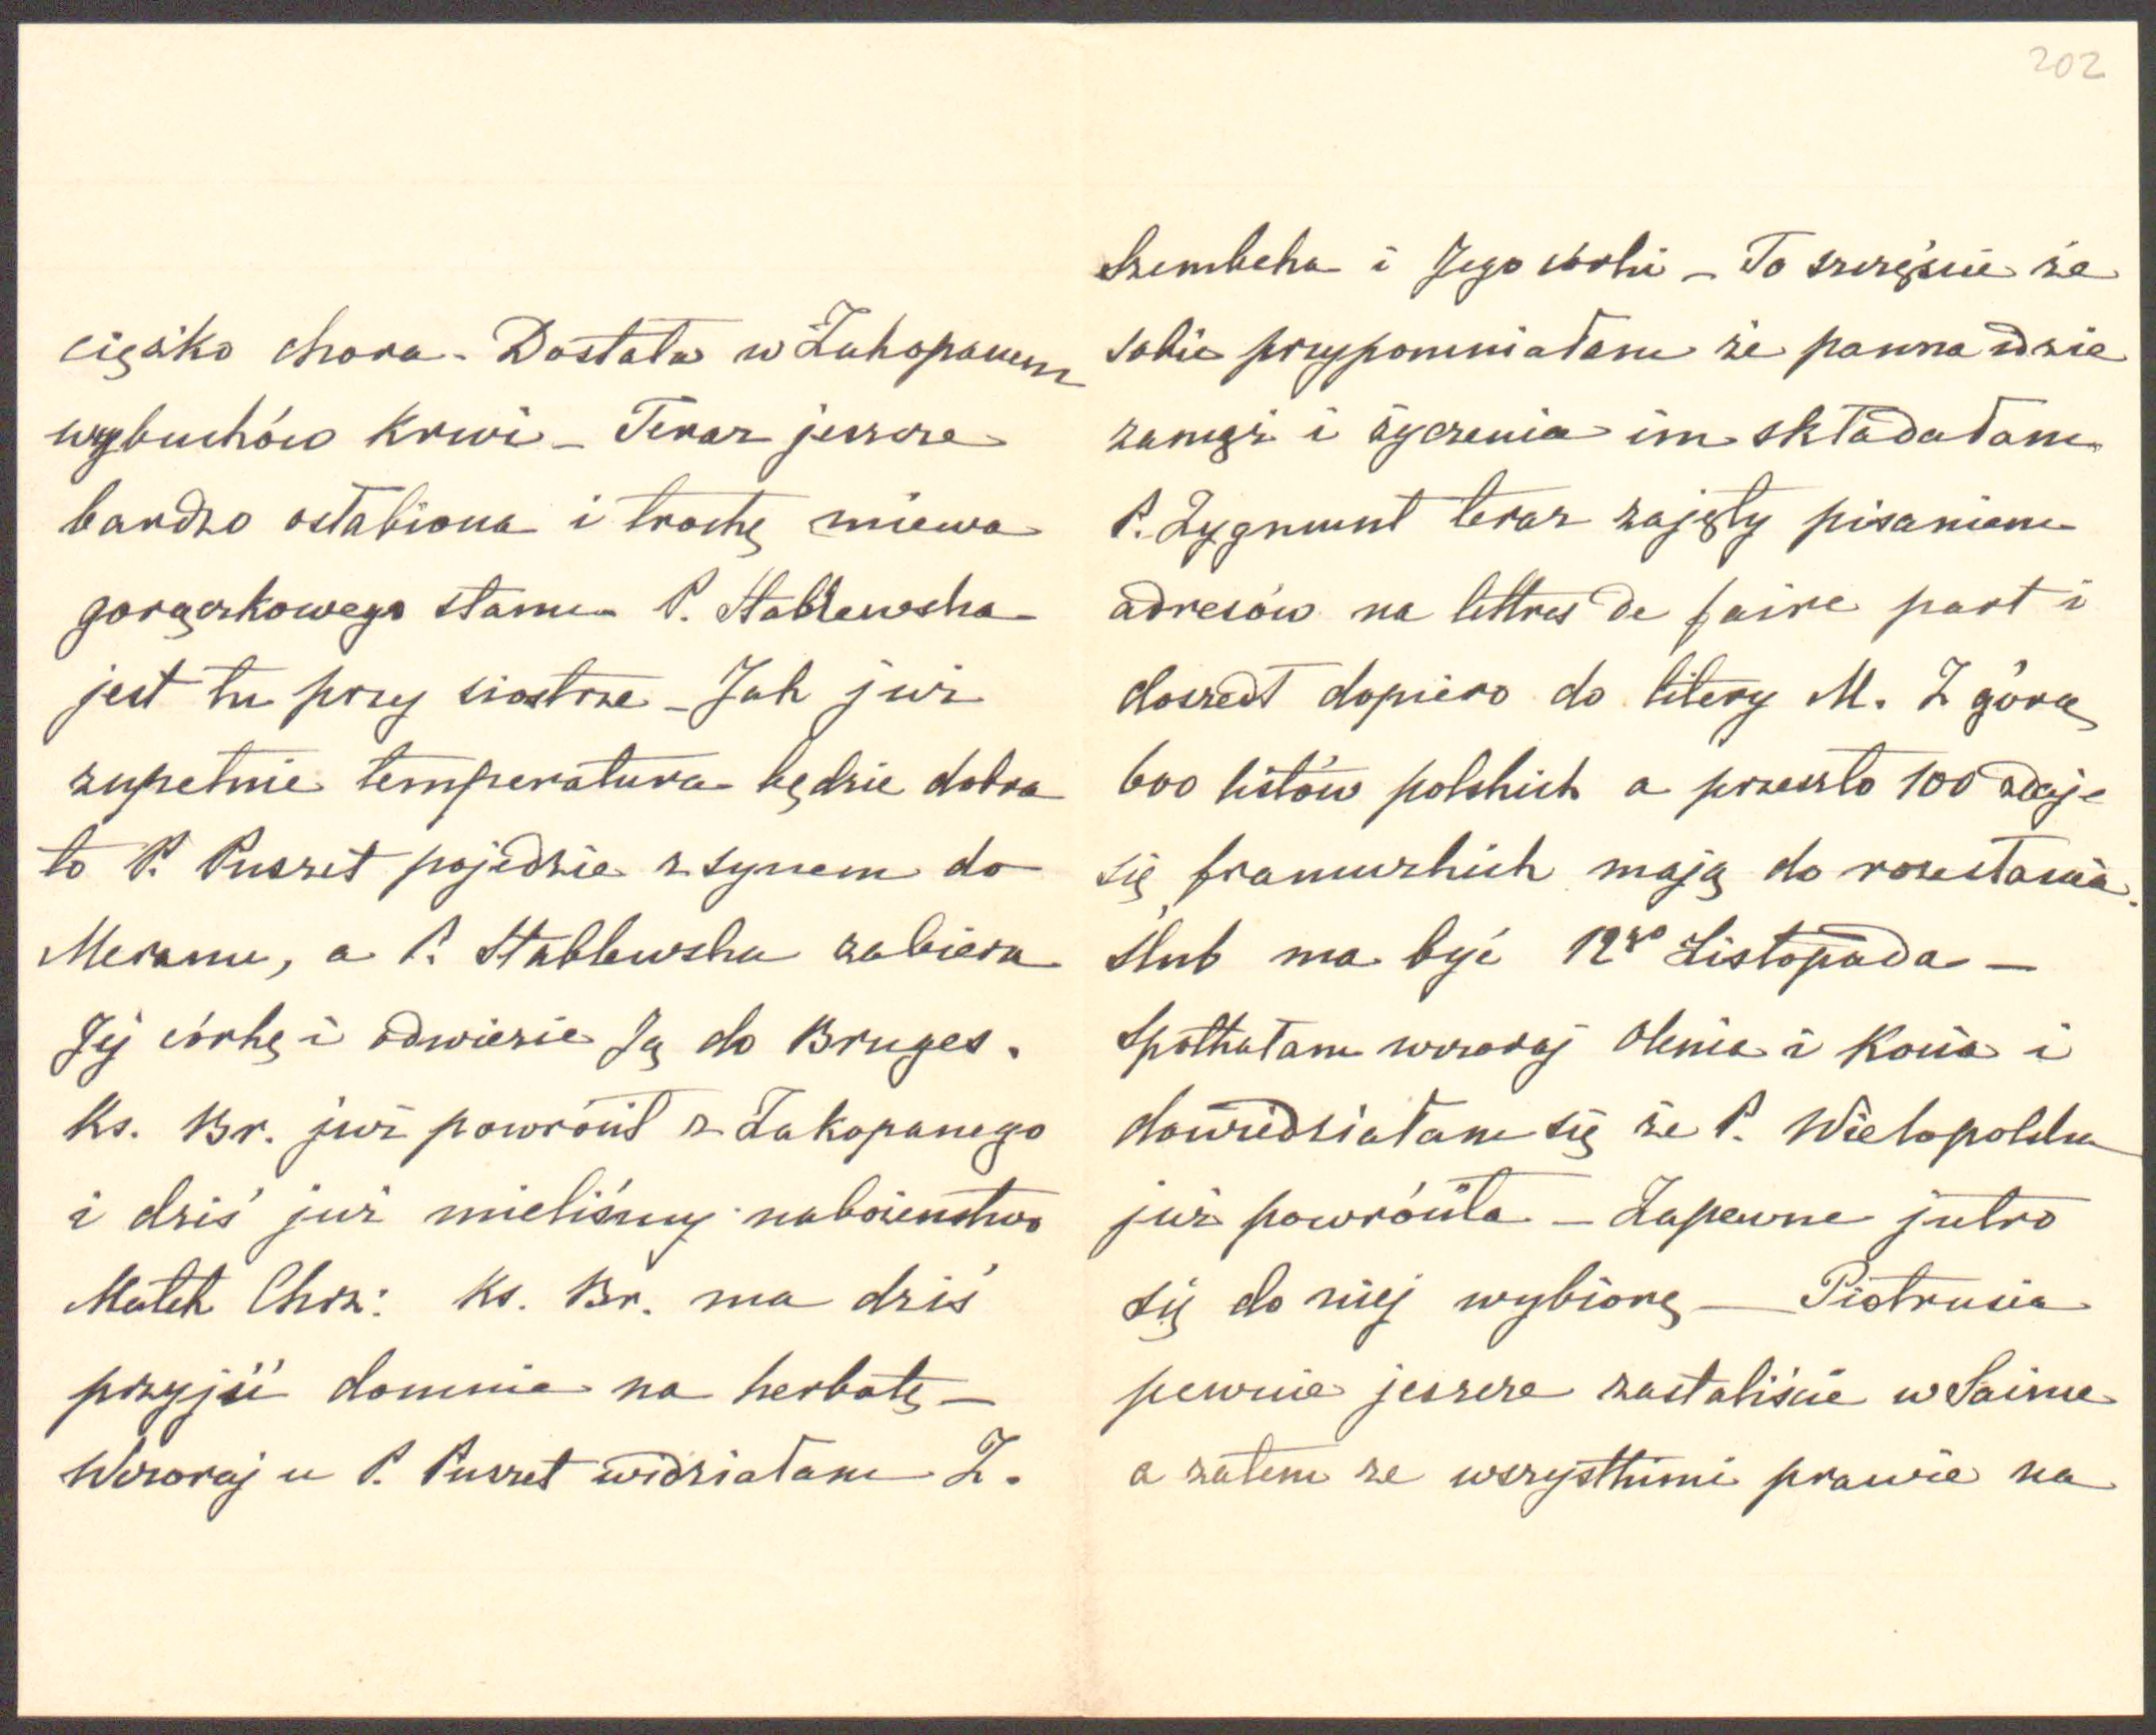 202
ciężko chora - Dostała w Zakopanem
wybuchów krwi - Teraz jeszcze
bardzo osłabiona i trochę miewa
gorączkowego stanu - P. Stablewska
jest tu przy siostrze - Jak już
zupełnie temperatura będzie dobra
to P. Puszet pojedzie z synem do
Meranu, a P. Stablewska zabiera
Jej córkę i odwiezie Ją do Bruges.
Ks. Br. już powrócił z Zakopanego
i dziś już mieliśmy nabożeństwo
Matek Chrz: Ks. Br. ma dziś
przyjść domnie na herbatę -
Wczoraj u P. Puszet widziałam Z.
Szembeka i Jego córki - To szczęście że
sobie przypomniałam że panna idzie
zamąż i życzenia im składałam
P. Zygmunt teraz zajęty pisaniem
adresów na lettres de faire part i
doszedł dopiero do litery M. Z górą
600 listów polskich a przeszło 100 zdaje
się francuzkich mają do rozesłania.
Ślub ma być 12go Listopada -
Spotkałam wczoraj Olenia i Kocia i
dowiedziałam się że P. Wielopolska
już powróciła - Zapewne jutro
się do niej wybiorę - Piotrusia
pewnie jeszcze zastaliście w
a zatem ze wszystkimi prawie na